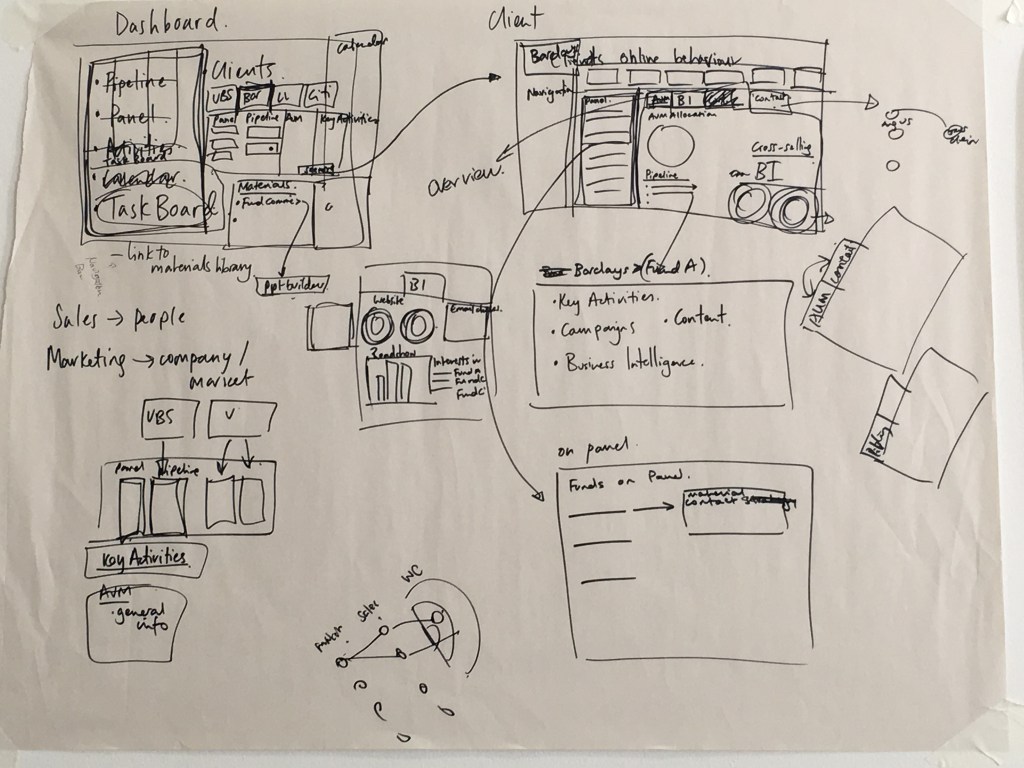 Dashboard.
Client
Calendar
Pipeline
Panel
Activities
Task Board
Calendar.
Task Board
Clients.
UBS
Bar
U
Citi
Panel
Pipeline
Aum
Key Activities
Materials.
Fund comm
- link to
materials library
Navigation
ppt builder
Barclays
online behaviour
Navigation
Panel
BI
Contact
AUM Allocation
Pipeline
Cross-selling
BI
overview.
Angus
Sales → people
Marketing → company /
market
UBS
U
Panel
Pipeline
Key Activities
AUM
general
info
BI
Website
Roadshow
Interests in
Fund A
Fund C
Barclays > (Fund A).
Key Activities.
Campaigns
Content.
Business Intelligence.
AUM
contact
on panel.
Funds on Panel.
material
contact strategy
WC
Sales